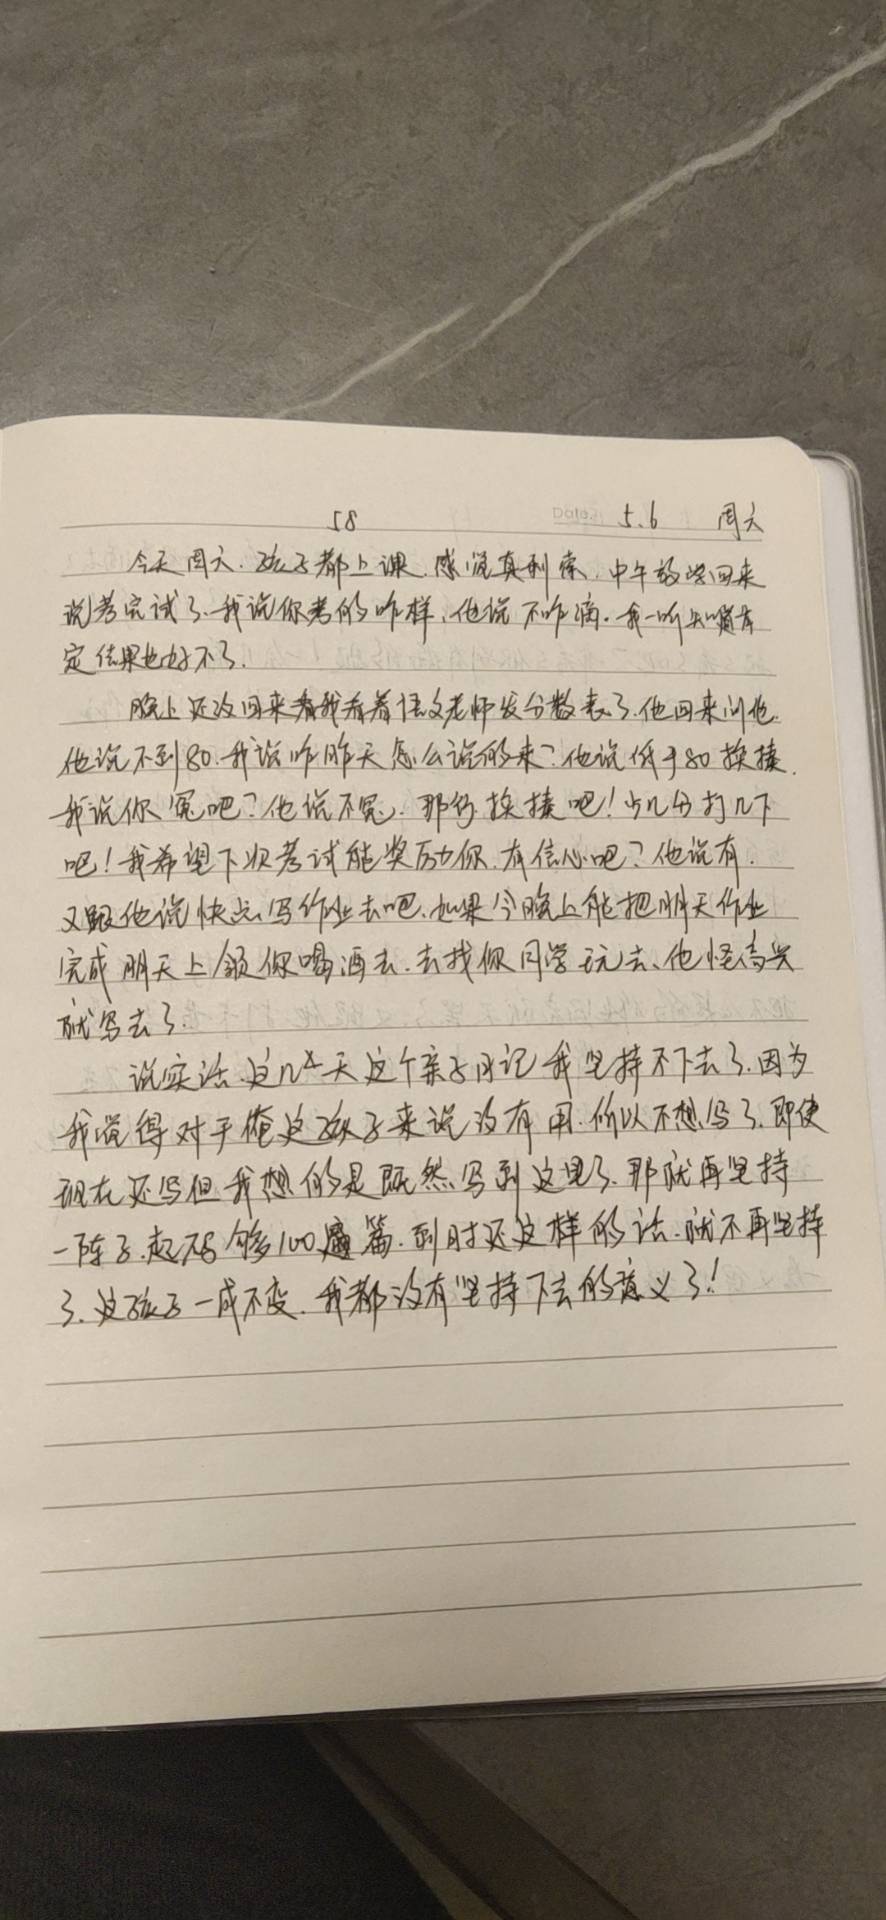 58 Date. 5.6 周六
今天周六.孩子都上课.感觉真利索.中午放学回来
说考完试了.我说你考的咋样、他说不咋滴.我一听
定结果也好不了.
晚上还没回来我看着语文老师发分数表了.他回来问他.
他说不到80.我说咋昨天怎么说的来?他说低于80挨揍.
我说你冤吧?他说不冤.那你挨揍吧!少几分打几下
吧!我希望下次考试能奖励你.有信心吧?他说有.
又跟他说快点写作业去吧.如果今晚上能把明天作业
完成明天上领你喝酒去.去找你同学玩去、他怪高兴
就写去了.
说实话.这几天这个亲子日记我坚持不下去了.因为
我觉得对于俺这孩子来说没有用.所以不想写了.即使
现在还写但我想的是既然写到这里了.那就再坚持
一阵子.起码够100篇.到时还这样的话.就不再坚持
了.这孩子一成不变.我都没有坚持下去的意义了!